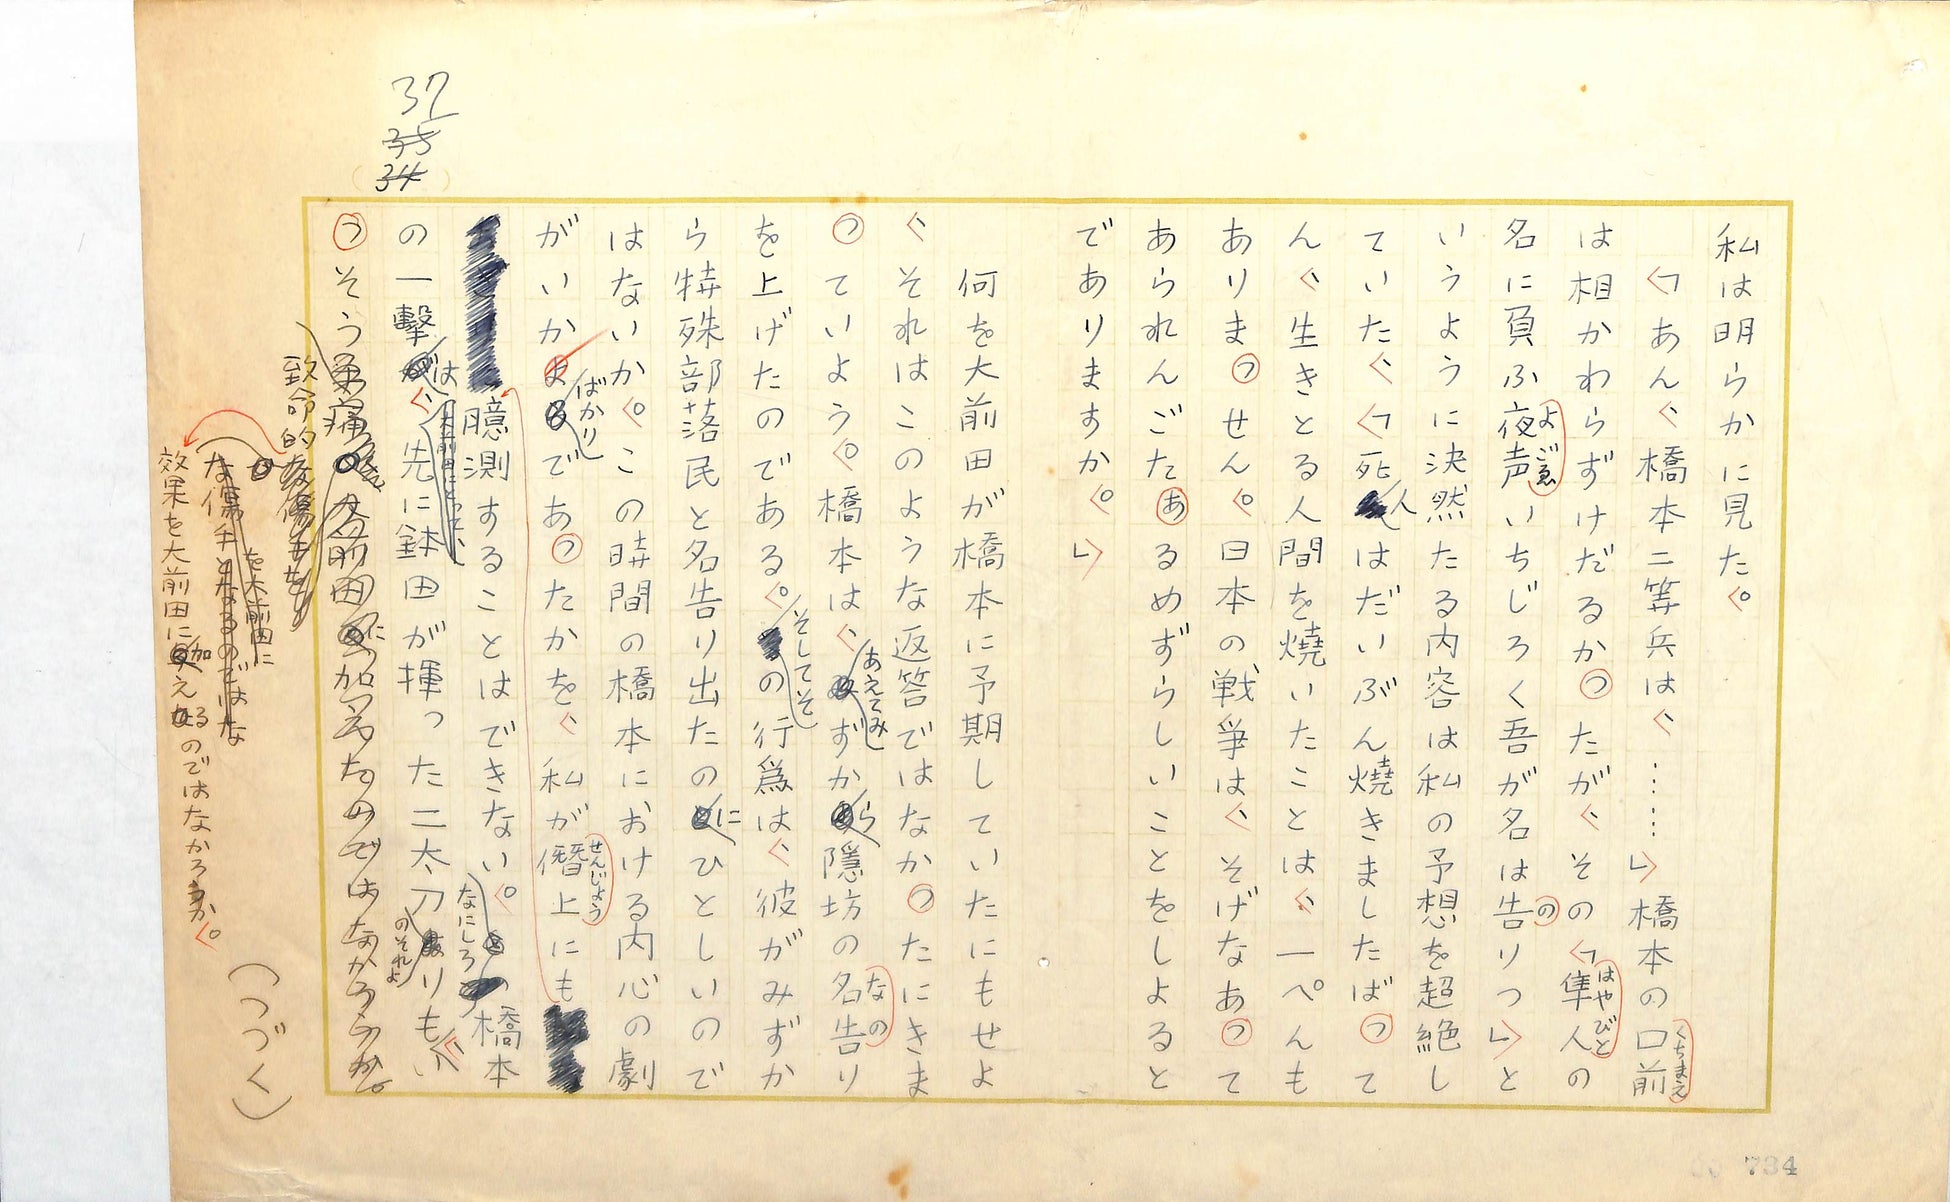 37
35
34
私は明らかに見た。
「あん、橋本二等兵は、……」橋本の口前
くちまえ
は相かわらずけだるかつたが、その「隼人の
はやびと
名に負ふ夜声いちじろく吾が名は告りつ」と
よごゑ
の
いうように決然たる内容は私の予想を超絶し
ていた、「死人はだいぶん燒きましたばつて
ん、生きとる人間を燒いたことは、一ぺんも
ありまつせん。日本の戦爭は、そげなあつて
あられんごたあるめずらしいことをしよると
でありますか。」
何を大前田が橋本に予期していたにもせよ
、それはこのような返答ではなかつたにきま
つていよう。橋本は、あえてみずから隱坊の名告り
なの
を上げたのである。そしてその行爲は、彼がみずか
ら特殊部落民と名告り出たのにひとしいので
はないか。この時間の橋本における内心の劇
がいかばかりであつたかを、私が僭上にも
せんじょう
臆測することはできない。なにしろ橋本
の一擊は、先に鉢田が揮った二太刀のそれよりも、い
つそう
致命的
な傷手となるのではな
を大前田に
効果を大前田に加えるのではなかろうか。
(つづく)
734